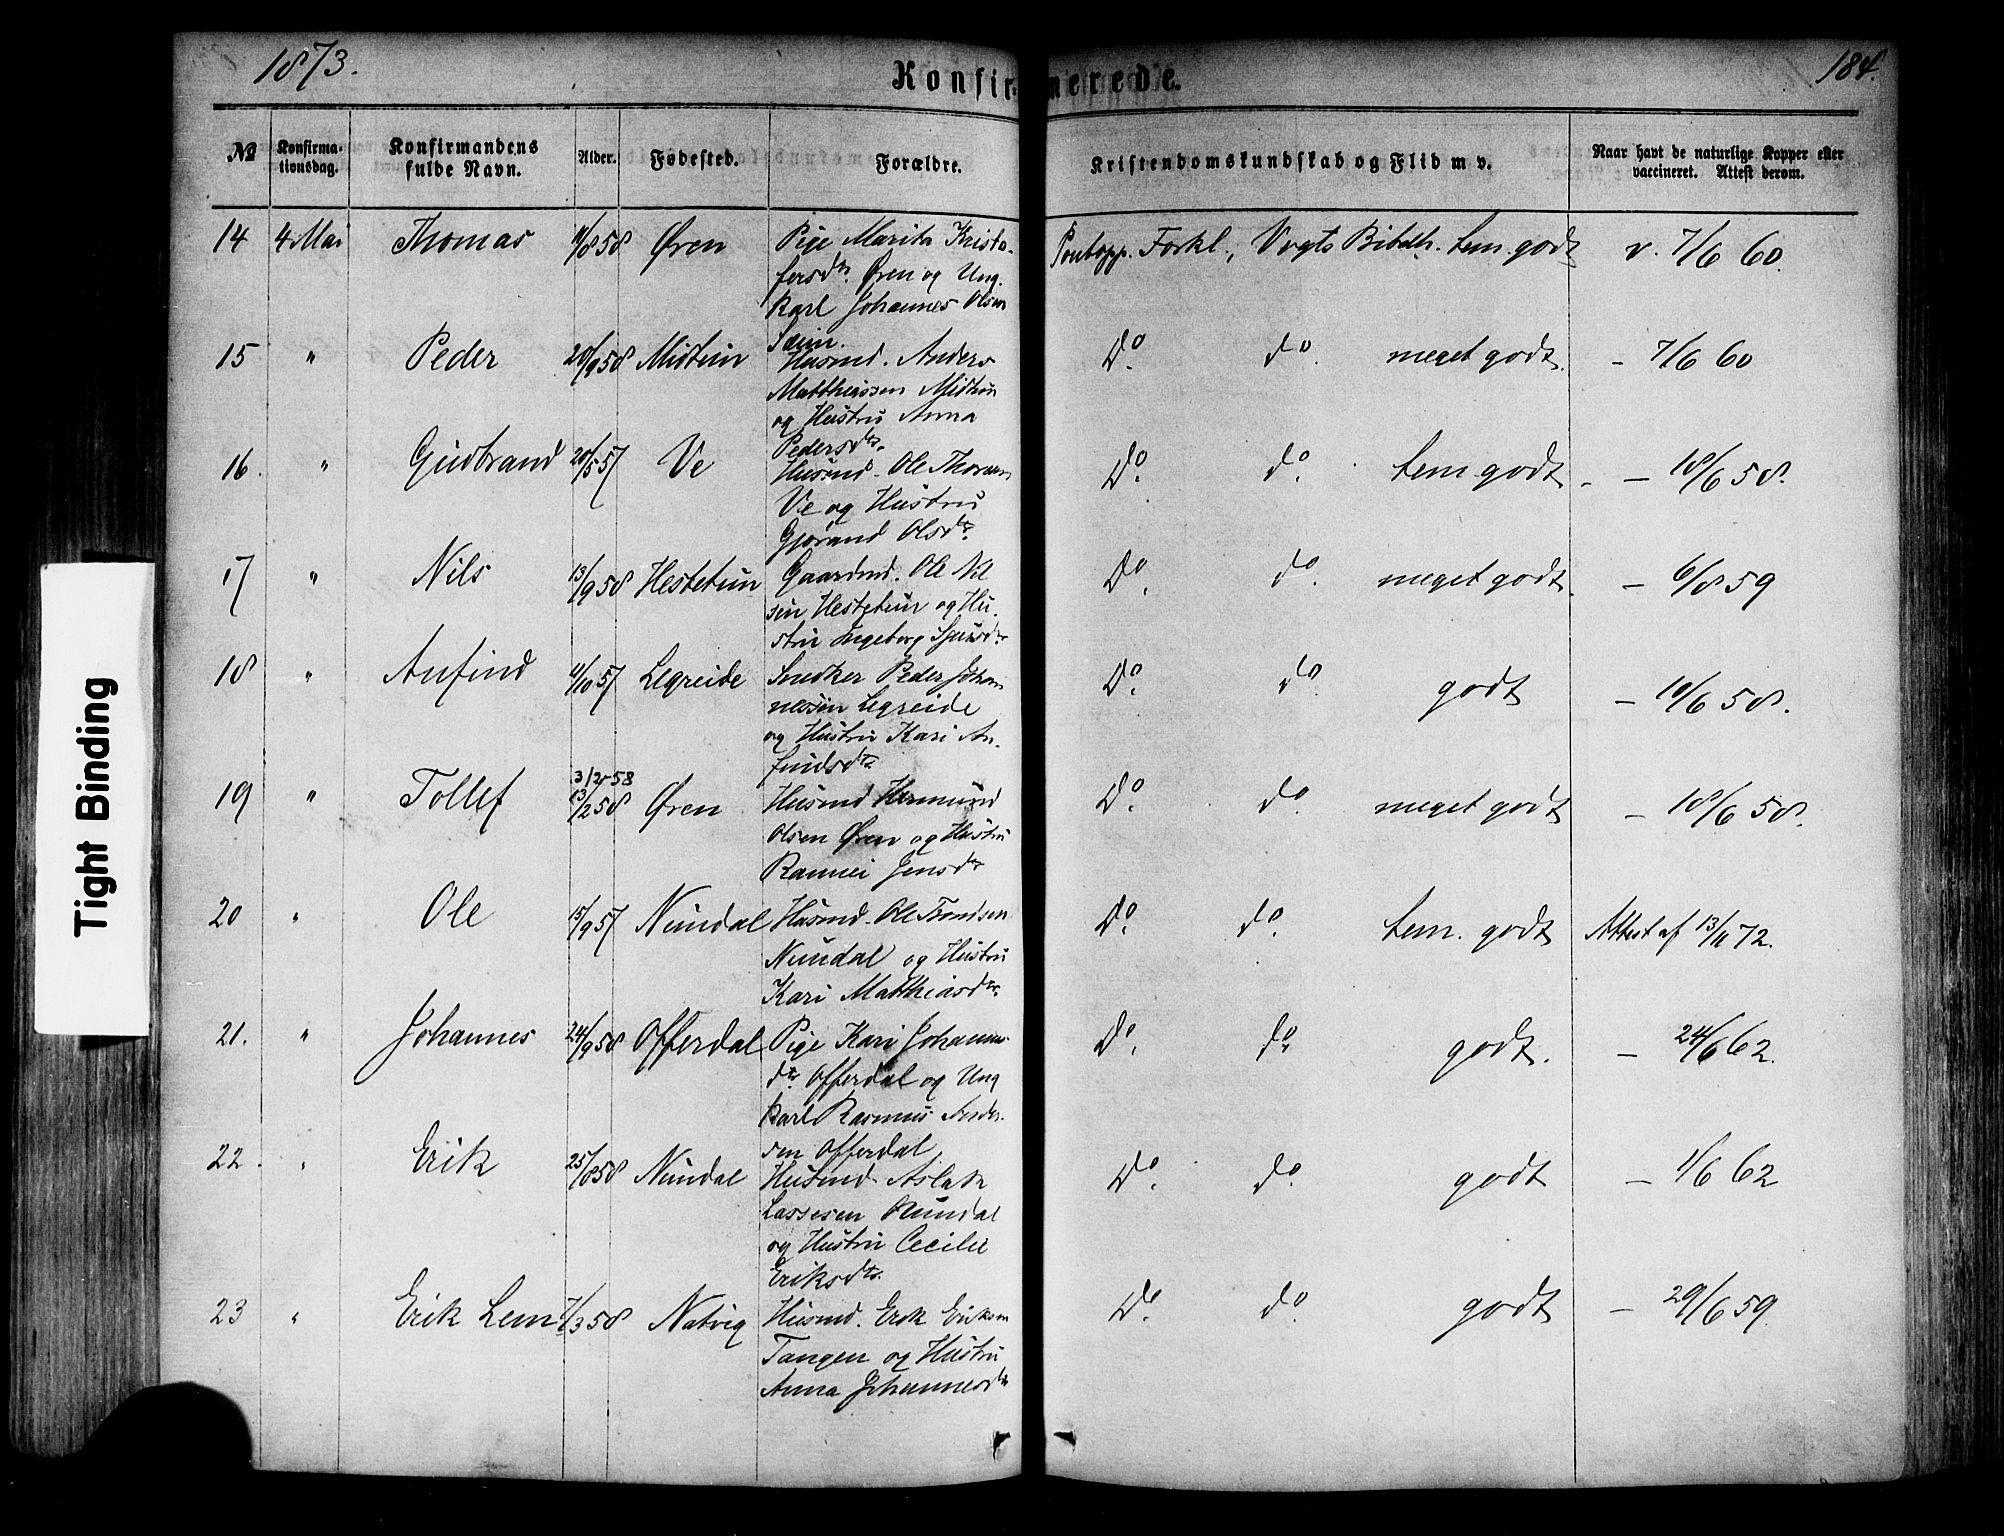 1873.
Konfirmerede.
184.
№
Konfirma-
tionsdag.
Konfirmandens
fulde Navn.
Alder.
Fødested.
Forældre.
Kristendomskundskab og Flid m v.
Naar havt de naturlige Kopper eller
vaccineret. Attest derom.
14 4 Mai Thomas 11/8 58 Øren Pige Marita Kristo- Pontopp. Forkl., Vogts Bibelh. tem. godt v. 7/6 60.
fersdtr. Øren og Ung-
karl Johannes Olsen
Seim.
15 " Peder 20/9 58 Midtun Husmd. Anders Do. do. meget godt. - 7/6 60
Matthiassen Midtun
og Hustru Anna
Pedersdtr.
16. " Gudbrand 20/5 57 Ve Husmd. Ole Thorsen Do. do. tem godt. - 18/6 58.
Ve og Hustru
Gjørand Olsdtr.
17 " Nils 13/9 58 Hestetun Gaardmd. Ole Nil Do. do. meget godt. - 6/8 59
sen Hestetun og Hu-
stru Ingeborg Sjursdtr
18 " Anfind 11/10 57 Legreide Snedker Peder Johan Do. do. godt - 18/6 58.
nessen Legreide
og Hustru Kari An-
findsdtr.
3/2 58
19 " Tollef 13/2 58 Øren Husmd Hermund Do. do. meget godt - 18/6 58.
Olsen Øren og Hustru
Rannei Jensdtr
20 " Ole 15/9 57 Nundal Husmd. Ole Trondsen Do. do. tem. godt Attest af 13/11 72.
Nundal og Hustru
Kari Matthiasdtr.
21. " Johannes 24/9 58 Offerdal Pige Kari Johannes- Do. do. godt. - 24/6 62.
dtr. Offerdal og Ung
karl Rasmus Ander-
sen Offerdal
22. " Erik 25/8 58 Nundal Husmd. Aslak Do. do. godt - 1/6 62
Lassesen Nundal
og Hustru Cecilie
Eriksdtr.
23 " Erik Lem 7/3 58 Natvig Husmd. Erik Eriksen Do. do. godt - 29/6 59.
Tangen og Hustru
Anna Johannesdtr
Tight Binding